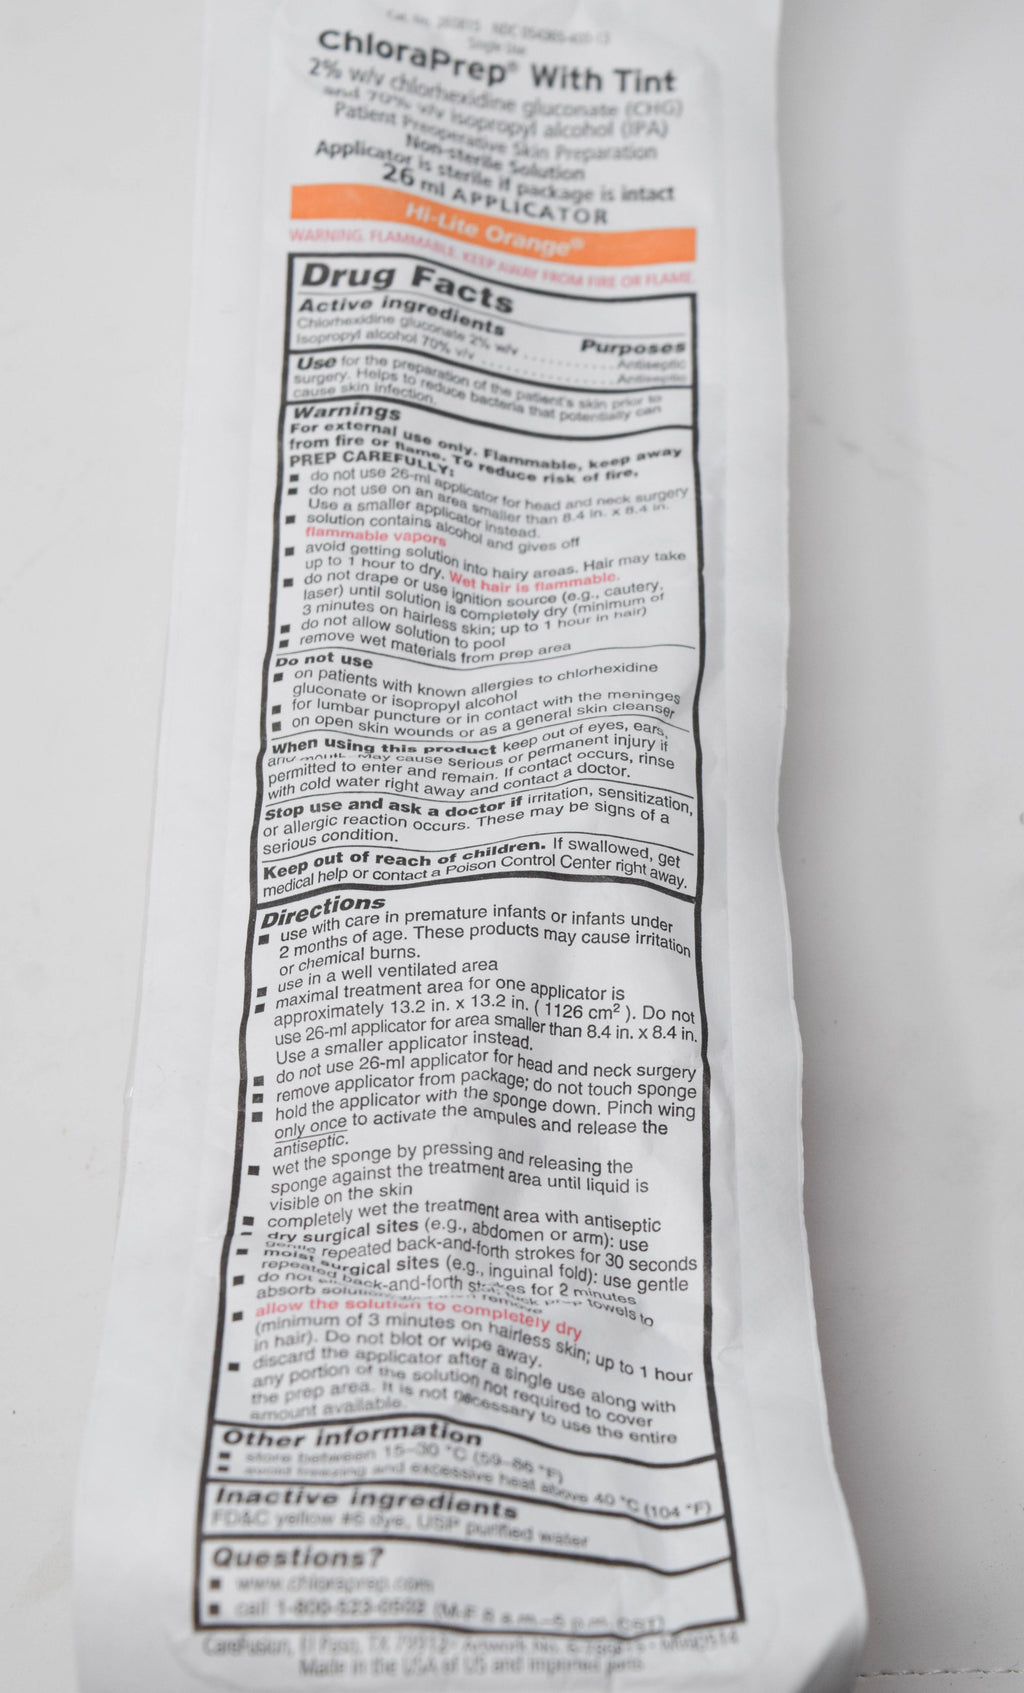 Single Use
ChloraPrep® With Tint
2% w/v chlorhexidine gluconate (CHG)
and 70% v/v isopropyl alcohol (IPA)
Patient Preoperative Skin Preparation
Non-sterile Solution
Applicator is sterile if package is intact
26 ml APPLICATOR
Hi-Lite Orange®
WARNING. FLAMMABLE. KEEP AWAY FROM FIRE OR FLAME.
Drug Facts
Active ingredients Purposes
Chlorhexidine gluconate 2% w/v ........... Antiseptic
Isopropyl alcohol 70% v/v ................ Antiseptic
Use for the preparation of the patient's skin prior to
surgery. Helps to reduce bacteria that potentially can
cause skin infection.
Warnings
For external use only. Flammable, keep away
from fire or flame. To reduce risk of fire,
PREP CAREFULLY:
■ do not use 26-ml applicator for head and neck surgery
■ do not use on an area smaller than 8.4 in. x 8.4 in.
Use a smaller applicator instead.
■ solution contains alcohol and gives off
flammable vapors
■ avoid getting solution into hairy areas. Hair may take
up to 1 hour to dry. Wet hair is flammable.
■ do not drape or use ignition source (e.g., cautery,
laser) until solution is completely dry (minimum of
3 minutes on hairless skin; up to 1 hour in hair)
■ do not allow solution to pool
■ remove wet materials from prep area
Do not use
■ on patients with known allergies to chlorhexidine
gluconate or isopropyl alcohol
■ for lumbar puncture or in contact with the meninges
■ on open skin wounds or as a general skin cleanser
When using this product keep out of eyes, ears,
and mouth. May cause serious or permanent injury if
permitted to enter and remain. If contact occurs, rinse
with cold water right away and contact a doctor.
Stop use and ask a doctor if irritation, sensitization,
or allergic reaction occurs. These may be signs of a
serious condition.
Keep out of reach of children. If swallowed, get
medical help or contact a Poison Control Center right away.
Directions
■ use with care in premature infants or infants under
2 months of age. These products may cause irritation
or chemical burns.
■ use in a well ventilated area
■ maximal treatment area for one applicator is
approximately 13.2 in. x 13.2 in. ( 1126 cm² ). Do not
use 26-ml applicator for area smaller than 8.4 in. x 8.4 in.
Use a smaller applicator instead.
■ do not use 26-ml applicator for head and neck surgery
■ remove applicator from package; do not touch sponge
■ hold the applicator with the sponge down. Pinch wing
only once to activate the ampules and release the
antiseptic.
■ wet the sponge by pressing and releasing the
sponge against the treatment area until liquid is
visible on the skin
■ completely wet the treatment area with antiseptic
■ dry surgical sites (e.g., abdomen or arm): use
gentle repeated back-and-forth strokes for 30 seconds
■ moist surgical sites (e.g., inguinal fold): use gentle
repeated back-and-forth strokes for 2 minutes
■ do not tuck prep towels to
absorb solution remove
■ allow the solution to completely dry
(minimum of 3 minutes on hairless skin; up to 1 hour
in hair). Do not blot or wipe away.
■ discard the applicator after a single use along with
any portion of the solution not required to cover
the prep area. It is not necessary to use the entire
amount available.
Other information
■ store between 15-30 °C (59-86 °F)
■ avoid freezing and excessive heat above 40 °C (104 °F)
Inactive ingredients
FD&C yellow #6 dye, USP purified water
Questions?
■ www.chloraprep.com
■ call 1-800-523-0502 (M-F 8 a.m.-5 p.m. CST)
CareFusion, El Paso, TX 79912
Made in the USA of US and imported parts